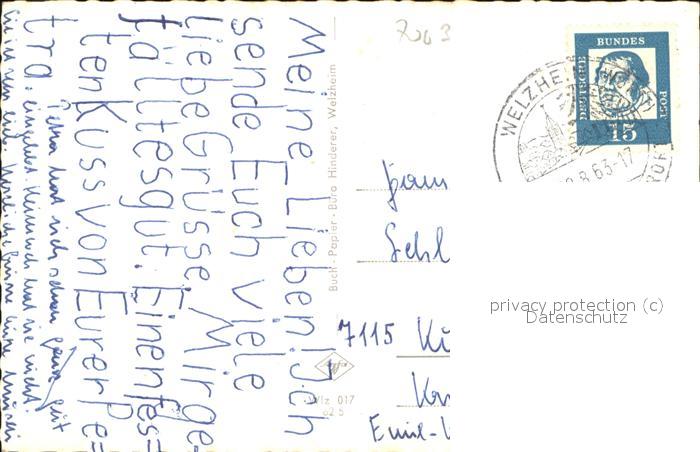 Meine Lieben! Ich
sende Euch viele
liebe Grüsse. Mirge=
fälltesgut. Einenfes=
ten Kuss von Eurer Pe=
tra.
Petra hat sich schon ganz gut
eingelebt. Heimweh hat sie nicht
Buch - Papier - Büro Hinderer, Welzheim
Wlz 017
62 5
7003
BUNDES
POST
DEUTSCHE
15
WELZHEIM
8.63-17
Fam
Schl
7115 Kü
Emil-
privacy protection (c)
Datenschutz